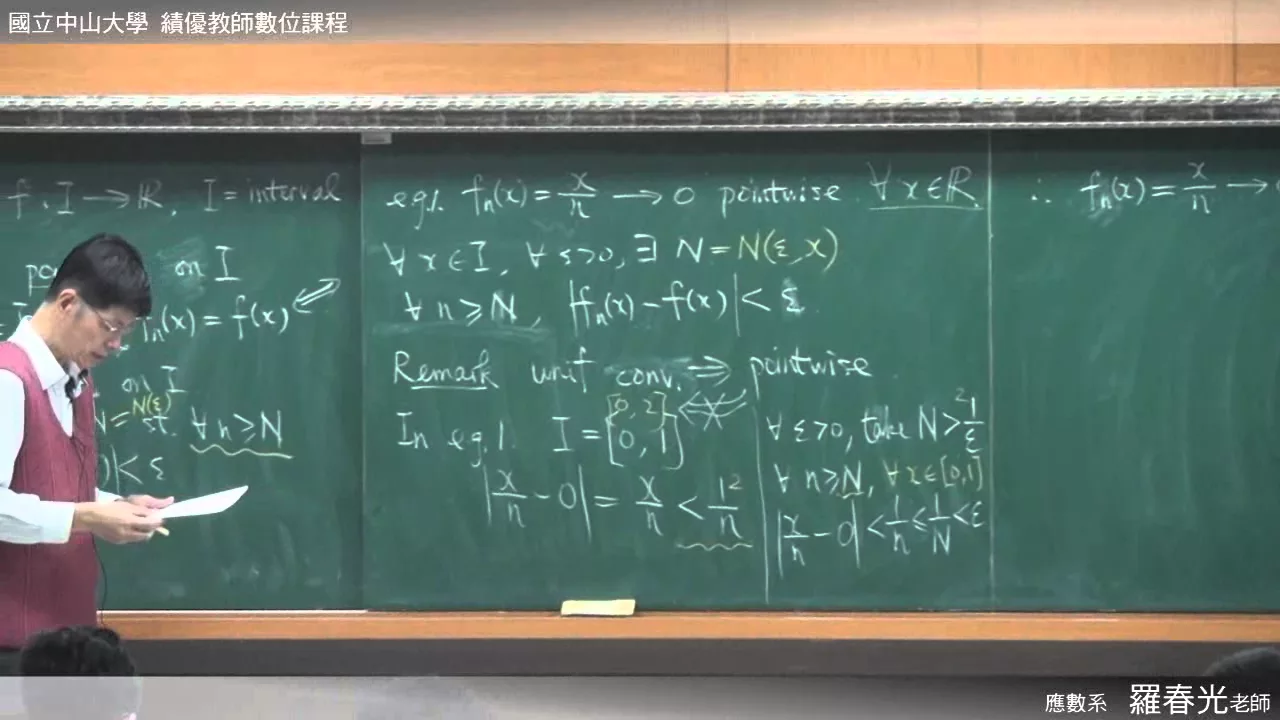 國立中山大學 績優教師數位課程
f : I → ℝ, I = interval
on I
fₙ(x) = f(x) ⟺
on I
N = N(ε) st. ∀ n ≥ N
| < ε
eg1. fₙ(x) = x/n → 0 pointwise ∀ x ∈ ℝ
∀ x ∈ I, ∀ ε > 0, ∃ N = N(ε, x)
∀ n ≥ N, |fₙ(x) − f(x)| < ε
Remark unif conv. ⟹ pointwise
[0, 2]
In eg.1. I = [0, 1]
|x/n − 0| = x/n < 1/n
2
∀ ε > 0, take N > 1/ε
2
∀ n ≥ N, ∀ x ∈ [0,1]
|x/n − 0| < 1/n ≤ 1/N < ε
∴ fₙ(x) = x/n →
應數系 羅春光老師